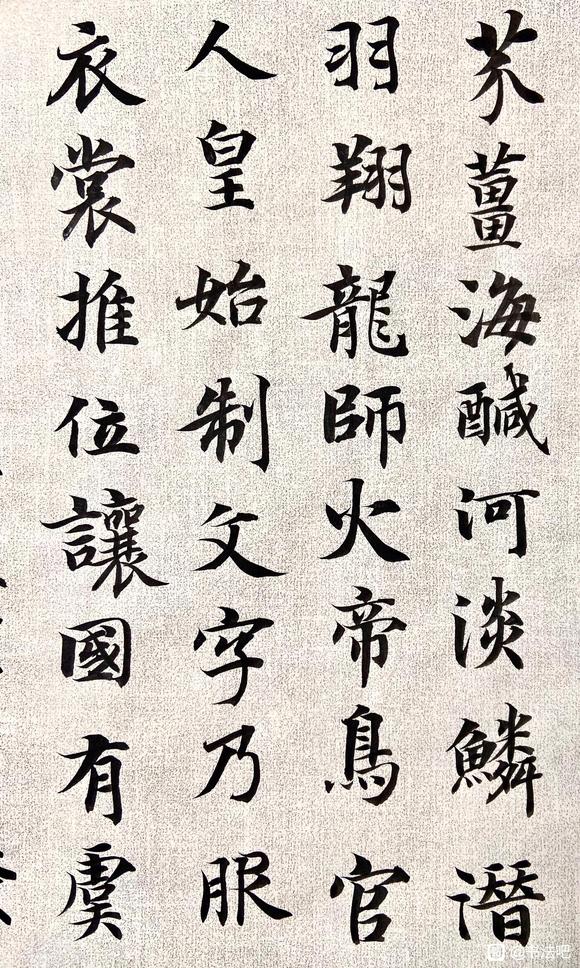 芥薑海鹹河淡鱗潛
羽翔龍師火帝鳥官
人皇始制文字乃服
衣裳推位讓國有虞
@书法吧